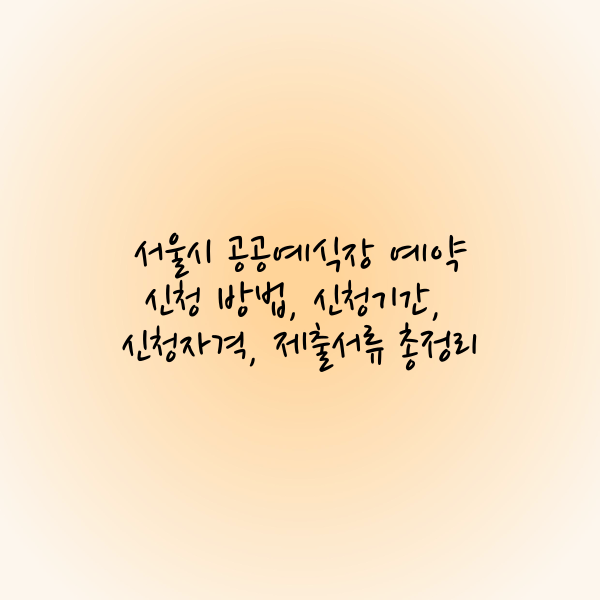 서울시 공공예식장 예약
신청 방법, 신청기간,
신청자격, 제출서류 총정리